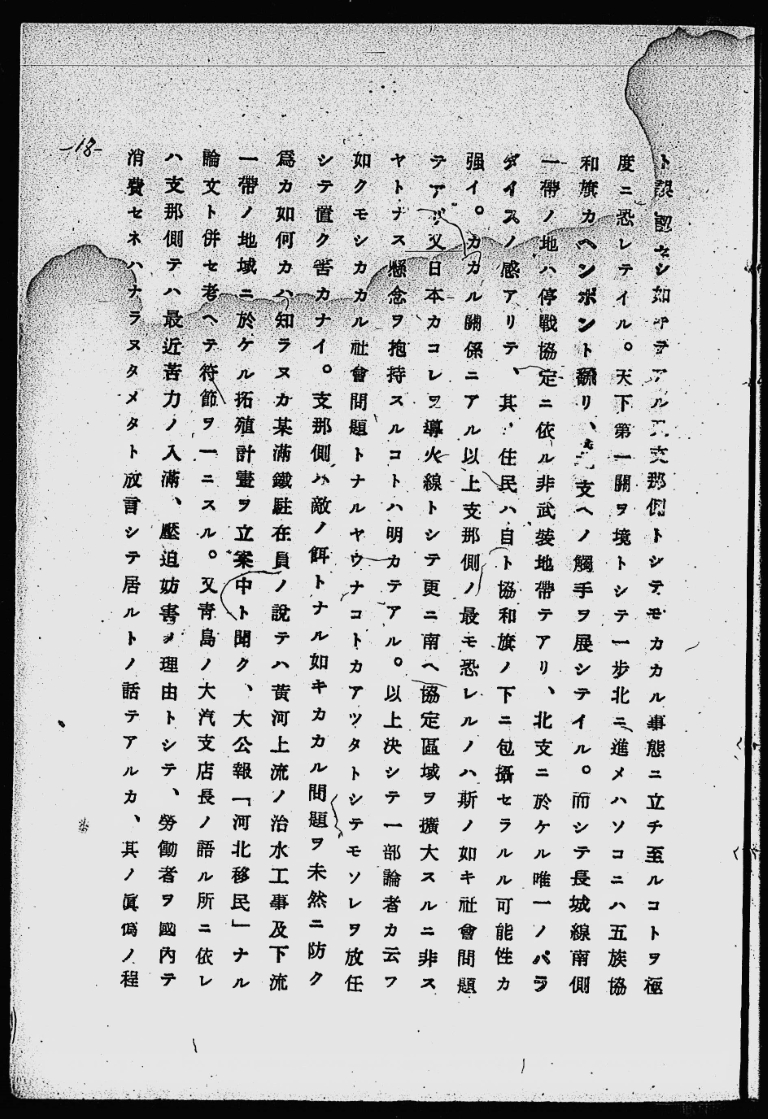 ト誤認セシ如キテアル又支那側トシテモカカル事態ニ立チ至ルコトヲ極
度ニ恐レテイル。天下第一關ヲ境トシテ一歩北ニ進メハソコニハ五族協
和旗カヘンポント飜リ、支ヘノ觸手ヲ展シテイル。而シテ長城線南側
一帶ノ地ハ停戰協定ニ依ル非武裝地帶テアリ、北支ニ於ケル唯一ノパラ
ダイスノ感アリテ、其ノ住民ハ自ト協和旗ノ下ニ包攝セラルル可能性カ
强イ。カカル關係ニアル以上支那側ノ最モ恐レルノハ斯ノ如キ社會問題
テアリ又日本カコレヲ導火線トシテ更ニ南ヘ協定區域ヲ擴大スルニ非ス
ヤトナス懸念ヲ抱持スルコトハ明カテアル。以上決シテ一部論者カ云フ
如クモシカカル社會問題トナルヤウナコトカアツタトシテモソレヲ放任
シテ置ク筈カナイ。支那側ハ敵ノ餌トナル如キカカル問題ヲ未然ニ防ク
爲カ如何カハ知ラヌカ某滿鐵駐在員ノ說テハ黃河上流ノ治水工事及下流
一帶ノ地域ニ於ケル拓殖計畫ヲ立案中ト聞ク、大公報「河北移民」ナル
論文ト併セ考ヘテ符節ヲ一ニスル。又靑島ノ大汽支店長ノ語ル所ニ依レ
ハ支那側テハ最近苦力ノ入滿、壓迫妨害ヲ理由トシテ、勞働者ヲ國內テ
消費セネハナラヌタメタト放言シテ居ルトノ話テアルカ、其ノ眞僞ノ程
-18-